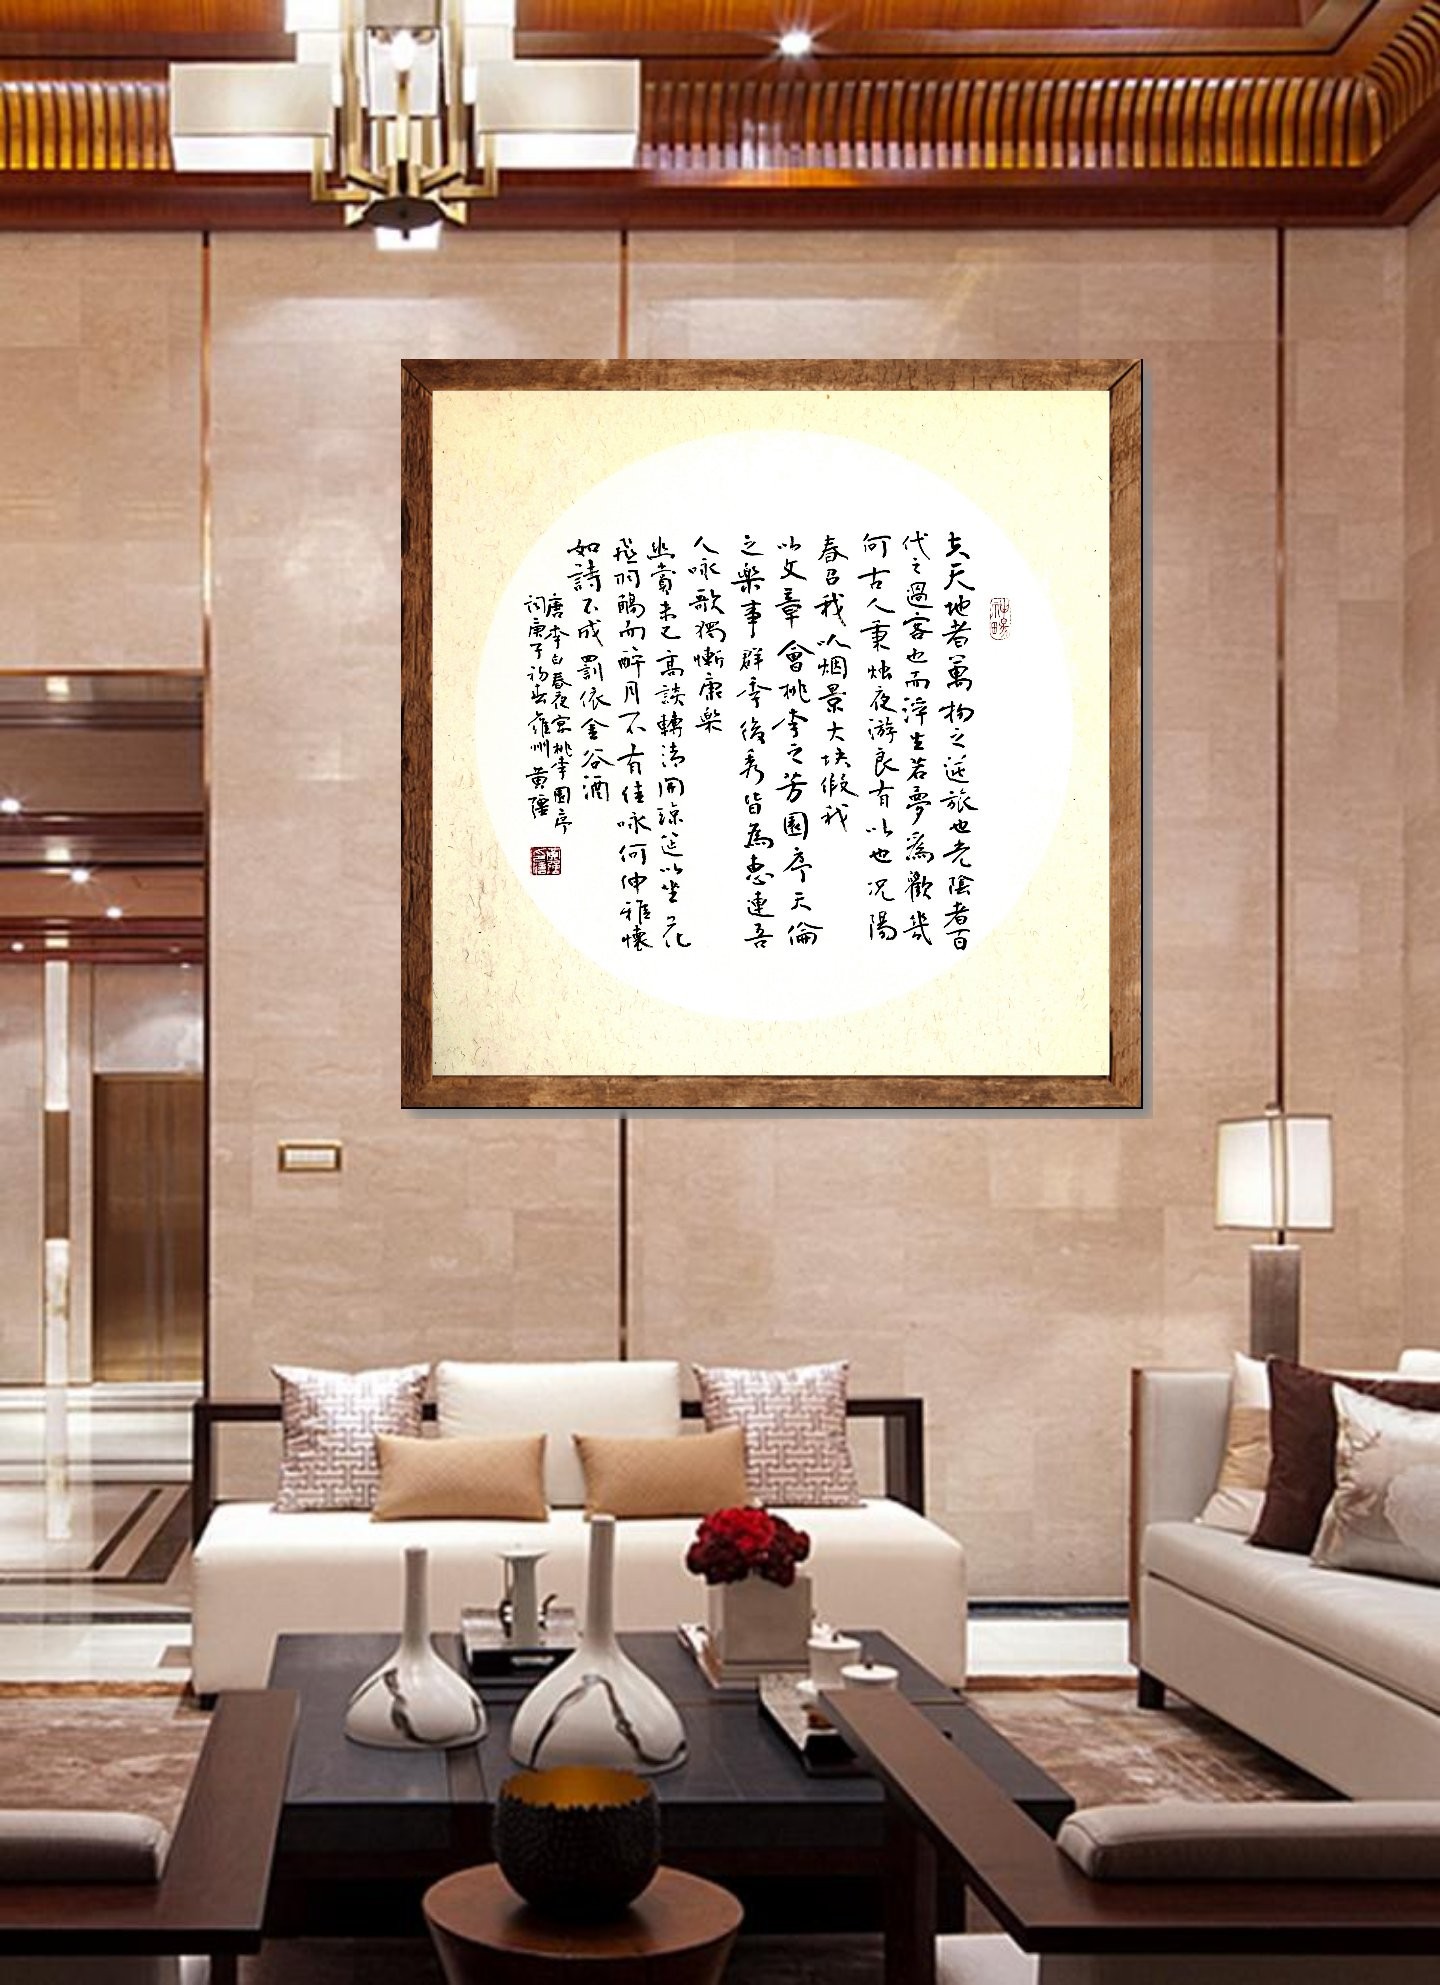 夫天地者萬物之逆旅也光陰者百
代之過客也而浮生若夢為歡幾
何古人秉烛夜游良有以也况陽
春召我以烟景大块假我
以文章會桃李之芳園序天倫
之樂事群季俊秀皆為惠連吾
人咏歌獨慚康樂
幽賞未已高談轉清開瓊筵以坐花
飛羽觴而醉月不有佳咏何伸雅懷
如詩不成罰依金谷酒
唐李白春夜宴桃李園序
詞庚子初春雍州黄